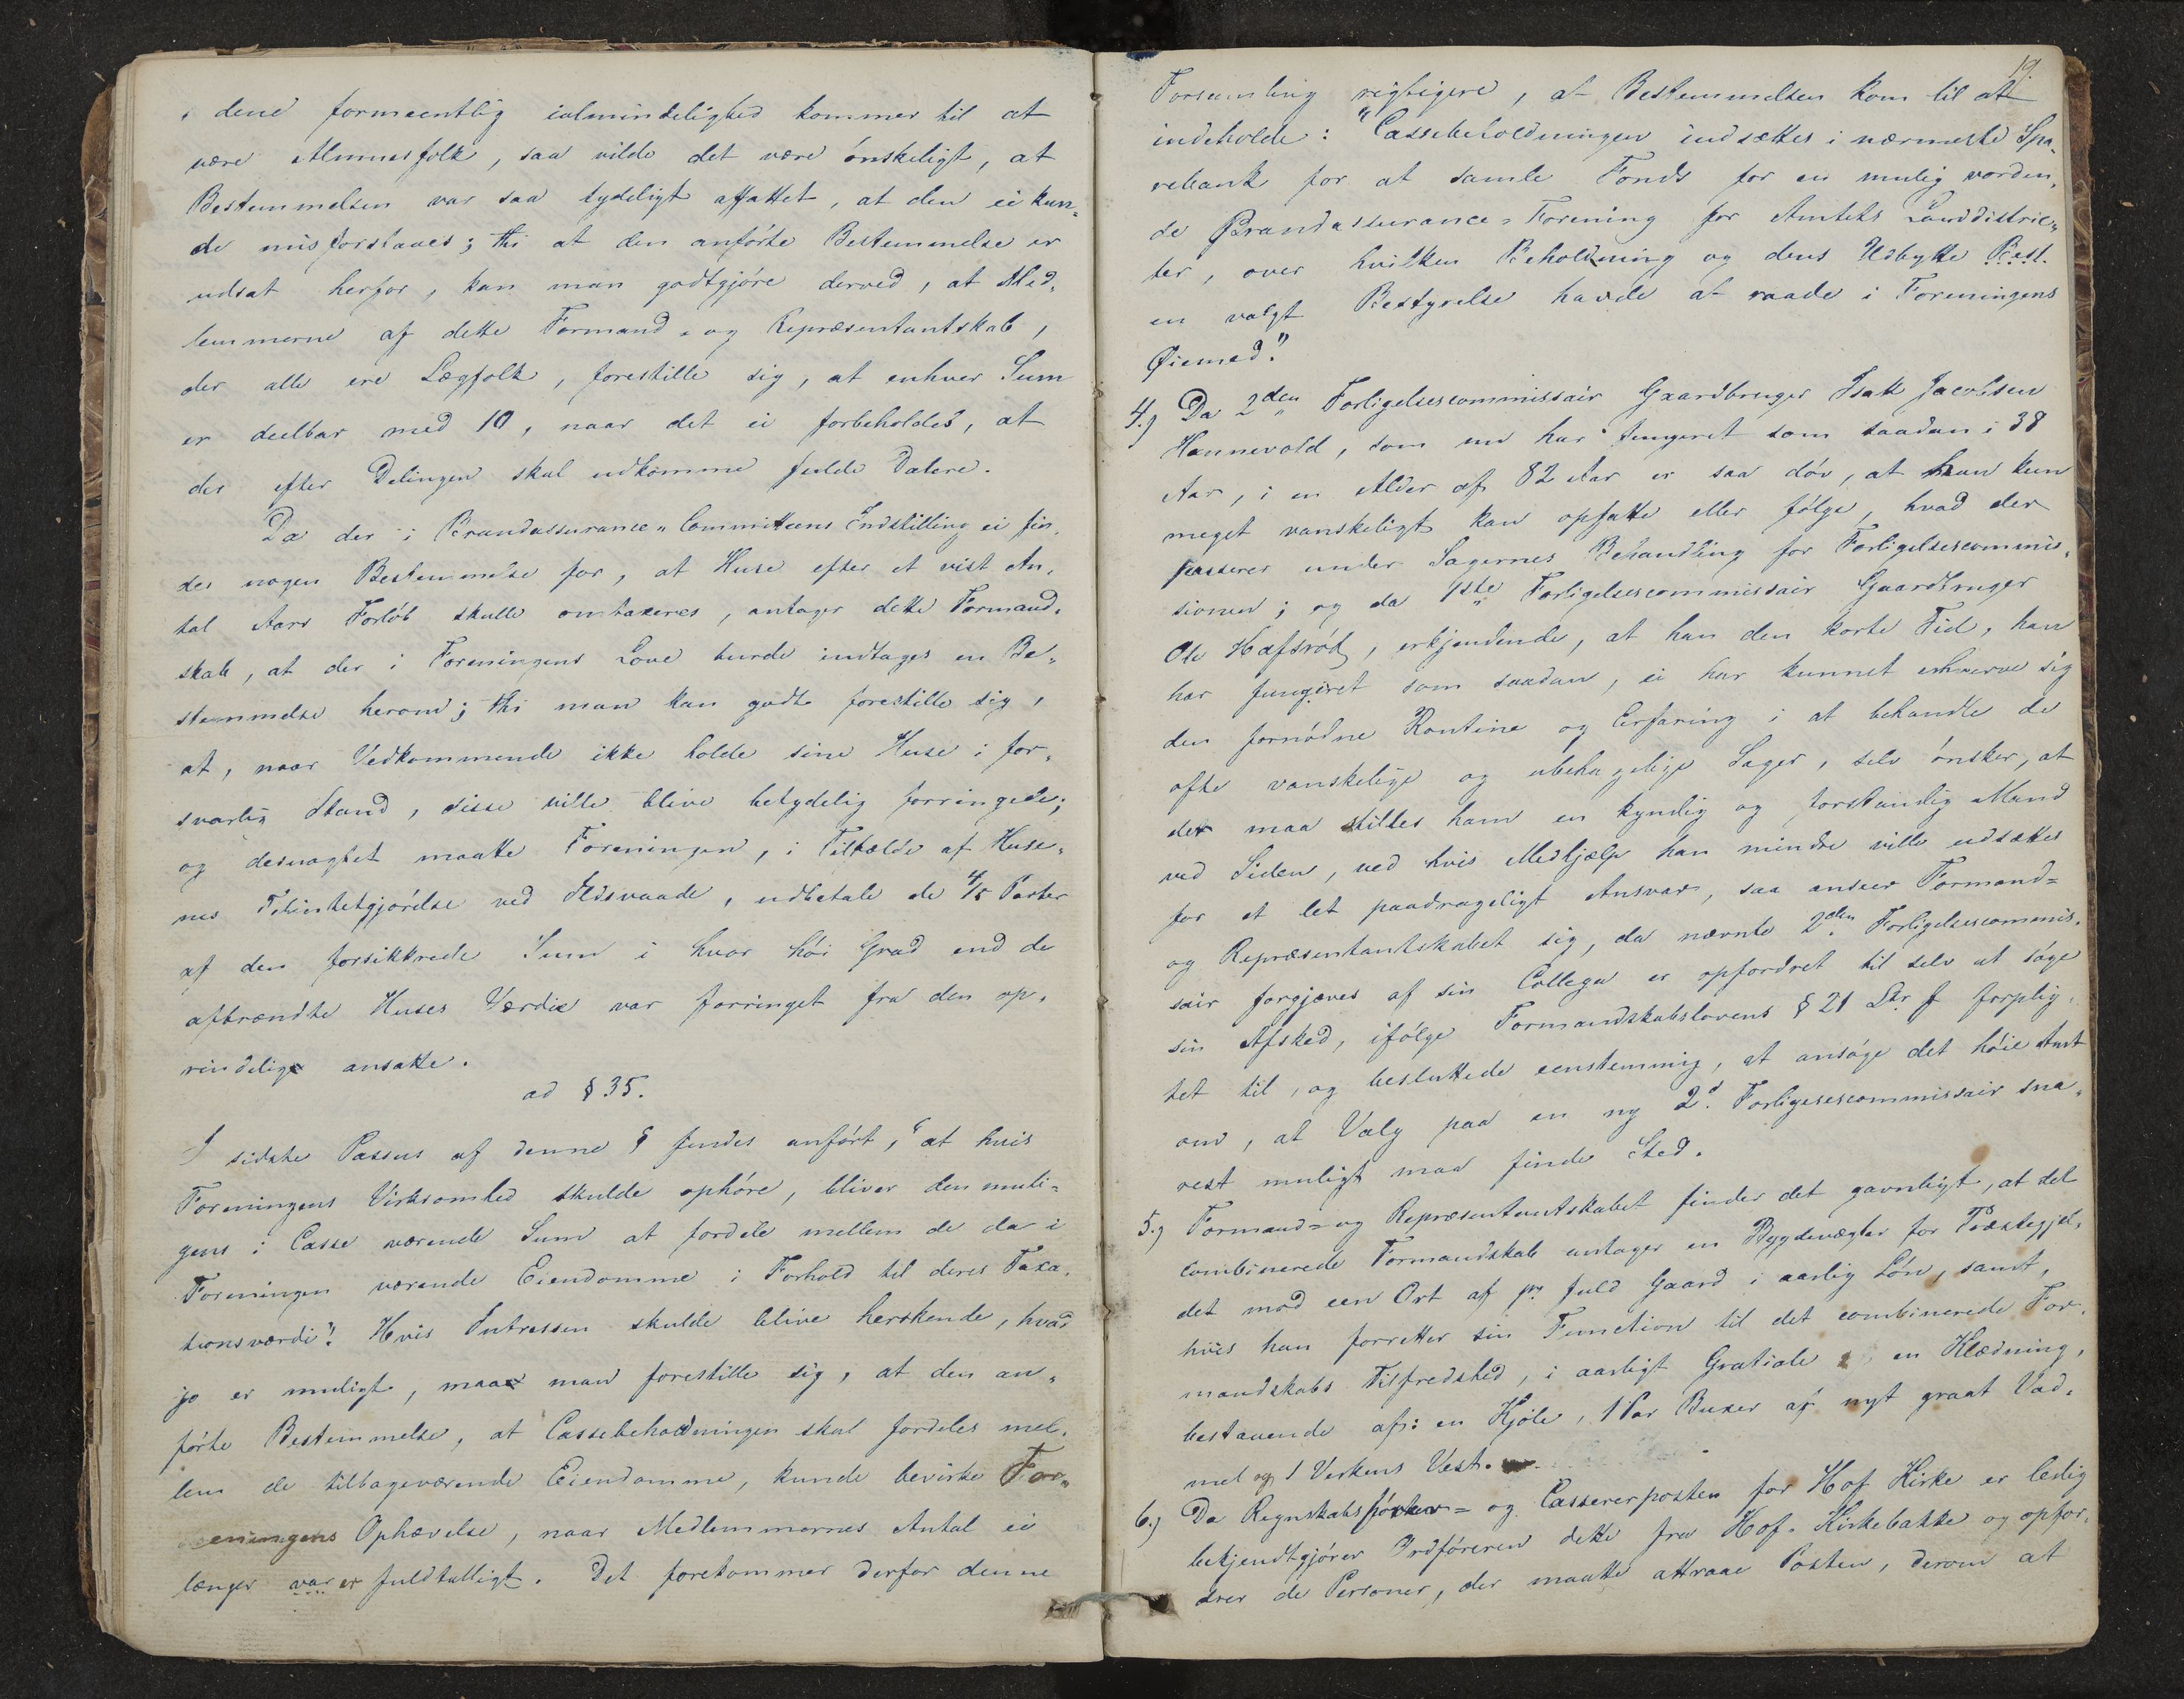 dene formeentlig ialmindelighed kommer til at
være Almuesfolk, saa vilde det være ønskeligt, at
Bestemmelsen var saa tydeligt affattet, at den ei kun-
de misforstaaes; thi at den anførte Bestemmelse er
udsat herfor, kan man godtgjøre derved, at Med-
lemmerne af dette Formand- og Repræsentantskab,
der alle ere Lægfolk, forestille sig, at enhver Sum
er deelbar med 10, naar det ei forbeholdes, at
der efter Delingen skal udkomme fulde Dalere.
Da der i Brandassurance-Committeens Indstilling ei fin-
des nogen Bestemmelse for, at Huse efter et vist An-
tal Aars Forløb skulle omtaxeres, antager dette Formand-
skab, at der i Foreningens Love burde indtages en Be-
stemmelse herom; thi man kan godt forestille sig,
at, naar Vedkommende ikke holde sine Huse i for-
svarlig Stand, disse ville blive betydelig forringede;
og desuagtet maatte Foreningen, i Tilfælde af Huse-
nes Tilintetgjørelse ved Ildsvaade, udbetale de 4/5 Parter
af den forsikkrede Sum i hvor høi Grad end de
afbrændte Huses Værdie var forringet fra den op-
rindelige ansatte.
ad § 35.
I sidste Passus af denne § findes anført, "at hvis
Foreningens Virksomhed skulde ophøre, bliver den muli-
gens i Casse værende Sum at fordele mellem de da i
Foreningen værende Eiendomme i Forhold til deres Taxa-
tionsværdi". Hvis Intressen skulde blive herskende, hvad
jo er muligt, maa man forestille sig, at den an-
førte Bestemmelse, at Cassebeholdningen skal fordeles mel-
lem de tilbageværende Eiendomme, kunde bevirke For-
eningens Ophævelse, naar Medlemmernes Antal ei
længer var er fuldtalligt. Det forekommer derfor denne
19.
Forsamling rigtigere, at Bestemmelsen kom til at
indeholde: "Cassebeholdningen indsættes i nærmeste Spa-
rebank for at samle Fonds for en mulig vorden-
de Brandassurance-Forening for Amtets Landdistric-
ter, over hvilken Beholdning og dens Udbytte Best.
en valgt Bestyrelse havde at raade i Foreningens
Øiemed."
4.) Da 2den Forligelsescommissair Gaardbruger Isak Jacobsen
Hannevold, som nu har fungeret som saadan i 38
Aar, i en Alder af 82 Aar er saa døv, at han kun
meget vanskeligt kan opfatte eller følge, hvad der
passerer under Sagernes Behandling for Forligelsescommis-
sionen; og da 1ste Forligelsescommissair Gaardbruger
Ole Hafsrød, erkjendende, at han den korte Tid, han
har fungeret som saadan, ei har kunnet erhverve sig
den fornødne Routine og Erfaring i at behandle de
ofte vanskelige og ubehagelige Sager, selv ønsker, at
der maa stilles ham en kyndig og forstandig Mand
ved Siden, ved hvis Medhjælp han mindre ville udsættes
for et let paadrageligt Ansvar, saa anseer Formand-
og Repræsentantskabet sig, da nævnte 2den Forligelsescommis-
sair forgjæves af sin Collega er opfordret til selv at søge
sin Afsked, ifølge Formandskabslovens § 21 Ltr. f forplig-
tet til, og besluttede eenstemmig, at ansøge det høie Amt
om, at Valg paa en ny 2d. Forligesescommissair sna-
rest muligt maa finde Sted.
5.) Formand- og Repræsentantskabet finder det gavnligt, at det
combinerede Formandskab antager en Bygdevægter for Præstegjel-
det mod een Ort af pr fuld Gaard i aarlig Løn, samt,
hvis han forretter sin Function til det combinerede For-
mandskabs Tilfredshed, i aarligt Gratiale en Klædning,
bestaaende af: en Kjole, 1 Par Buxer af nyt graat Vad-
mel og 1 Verkens Vest.
6.) Da Regnskabsfører- og Cassererposten for Hof Kirke er ledig
bekjendtgjører Ordføreren dette fra Hof-Kirkebakke og opfor-
drer de Personer, der maatte attraae Posten, derom at